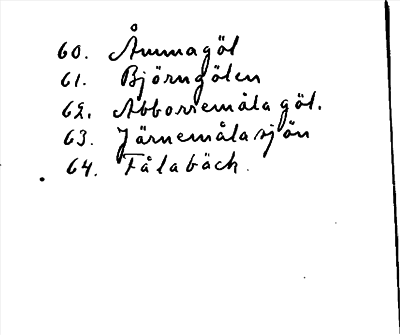 60. Ånmagöl
61. Björngölen
62. Abborremåla göl.
63. Järnemålasjön
64. Fålabäck.